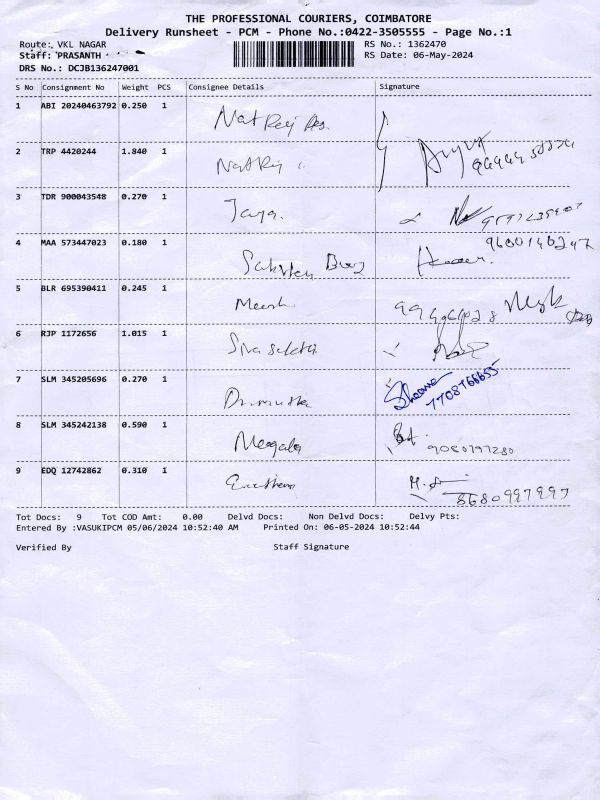 THE PROFESSIONAL COURIERS, COIMBATORE
Delivery Runsheet - PCM - Phone No.:0422-3505555 - Page No.:1
Route: VKL NAGAR
RS No.: 1362470
Staff: PRASANTH
RS Date: 06-May-2024
DRS No.: DCJB136247001
S No Consignment No Weight PCS Consignee Details Signature
1 ABI 20240463792 0.250 1 Nat Raj
2 TRP 4420244 1.840 1 NatRaj
3 TDR 900043548 0.270 1 Jaya.
4 MAA 573447023 0.180 1
5 BLR 695390411 0.245 1
6 RJP 1172656 1.015 1 Siva sakthi
7 SLM 345205696 0.270 1 7708766655
8 SLM 345242138 0.590 1 Megala 9080797280
9 EDQ 12742862 0.310 1 8680997997
Tot Docs: 9 Tot COD Amt: 0.00 Delvd Docs: Non Delvd Docs: Delvy Pts:
Entered By :VASUKIPCM 05/06/2024 10:52:40 AM Printed On: 06-05-2024 10:52:44
Verified By Staff Signature